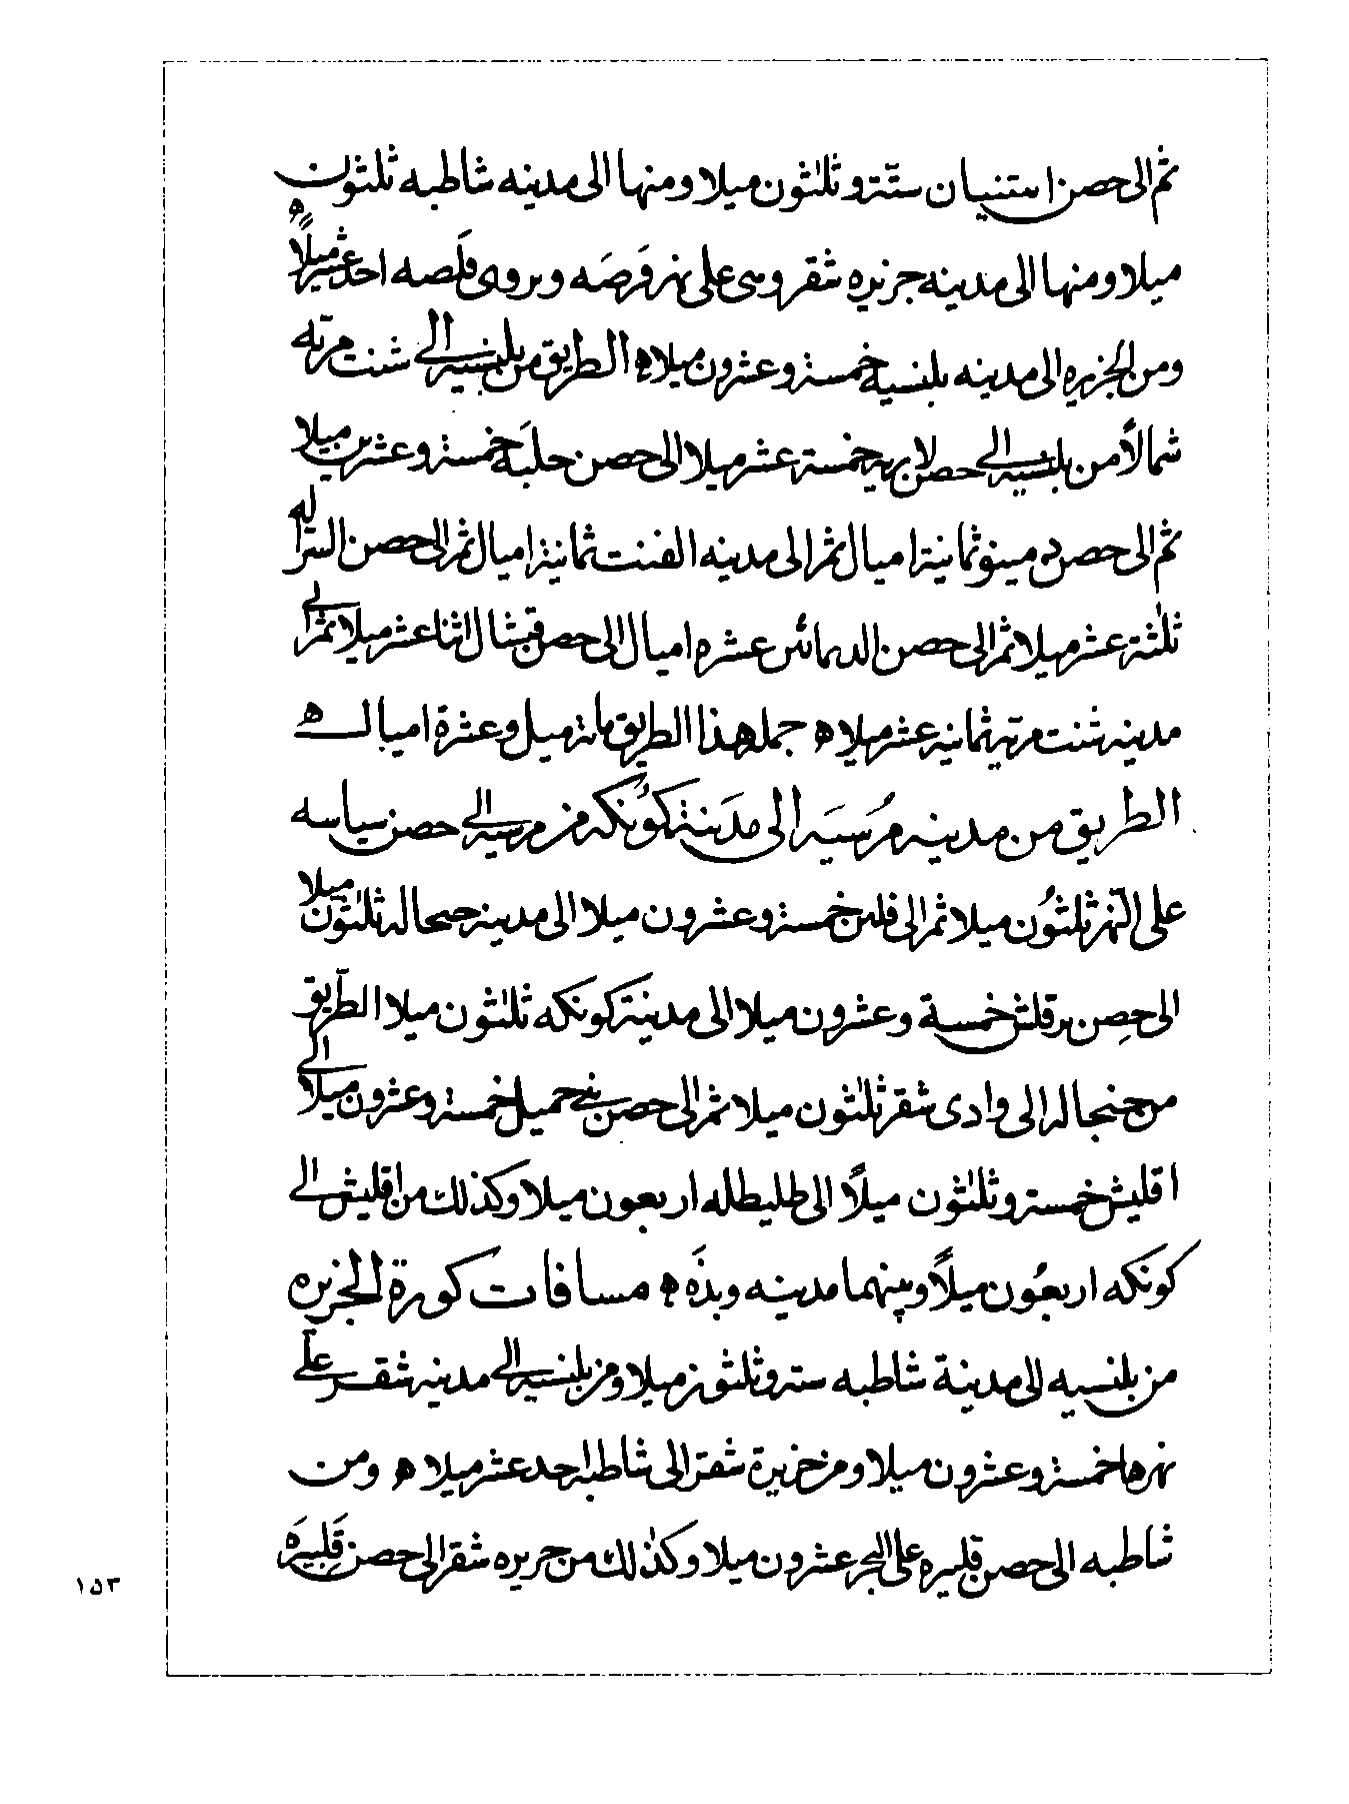 ثم الى حصن استنيان ستة وثلثون ميلا ومنها الى مدينه شاطبه ثلثون
ميلا ومنها الى مدينه جزيره شقر وهى على نهر فرضه ويروى قلصه احد عشر ميلاً ه
ومن الجزيره الى مدينه بلنسيه خمسة وعشرون ميلا ه الطريق من بلنسيه الى شنت مرته
شمالاً من بلنسيه الى حصن لابريه خمسة عشر ميلا الى حصن حلبَه خمسة وعشرين ميلا
ثم الى حصن مينو ثمانية اميال ثم الى مدينه الفنت ثمانية اميال ثم الى حصن السراله
ثلثة عشر ميلا ثم الى حصن عشره اميال الى حصن قبشال اثنا عشر ميلا ثم الى
مدينه شنت مريه ثمانيه عشر ميلا ه جمله هذا الطريق مائة ميل وعشرة اميال ه
الطريق من مدينه مُرسَيَه الى مدَينة كوُنكه فمن مرسيه الى حصن سياسه
على النّهر ثلثوُن ميلا ثم الى قلس خمسة وعشرون ميلا الى مدينه حنجاله ثلثون ميلا
الى حصِن برقلش خمسة وعشرون ميلا الى مدينة كونكه ثلثون ميلا الطّريق
من جنجاله الى وادى شقر ثلثون ميلا ثم الى حصن بنى حميل خمسة وعشرون ميلا الى
اقليش خمسة وثلثون ميلاً الى طليطله اربعون ميلا وكذلك من اقليش الى
كونكه اربعُون ميلاً وبينهما مدينه وبذَه ه مسافات كورة الجزيره
من بلنسيه الى مدينة شاطبه ستة وثلثون ميلا ومن بلنسيه الى مدينه شقر على
نهرها خمسة وعشرون ميلا ومن جزيرة شقر الى شاطبه احد عشر ميلا ه ومن
شاطبه الى حصن قلبيره على البحر عشرون ميلا وكذلك من جزيره شقر الى حصن قَلبيرَه
١٥٣